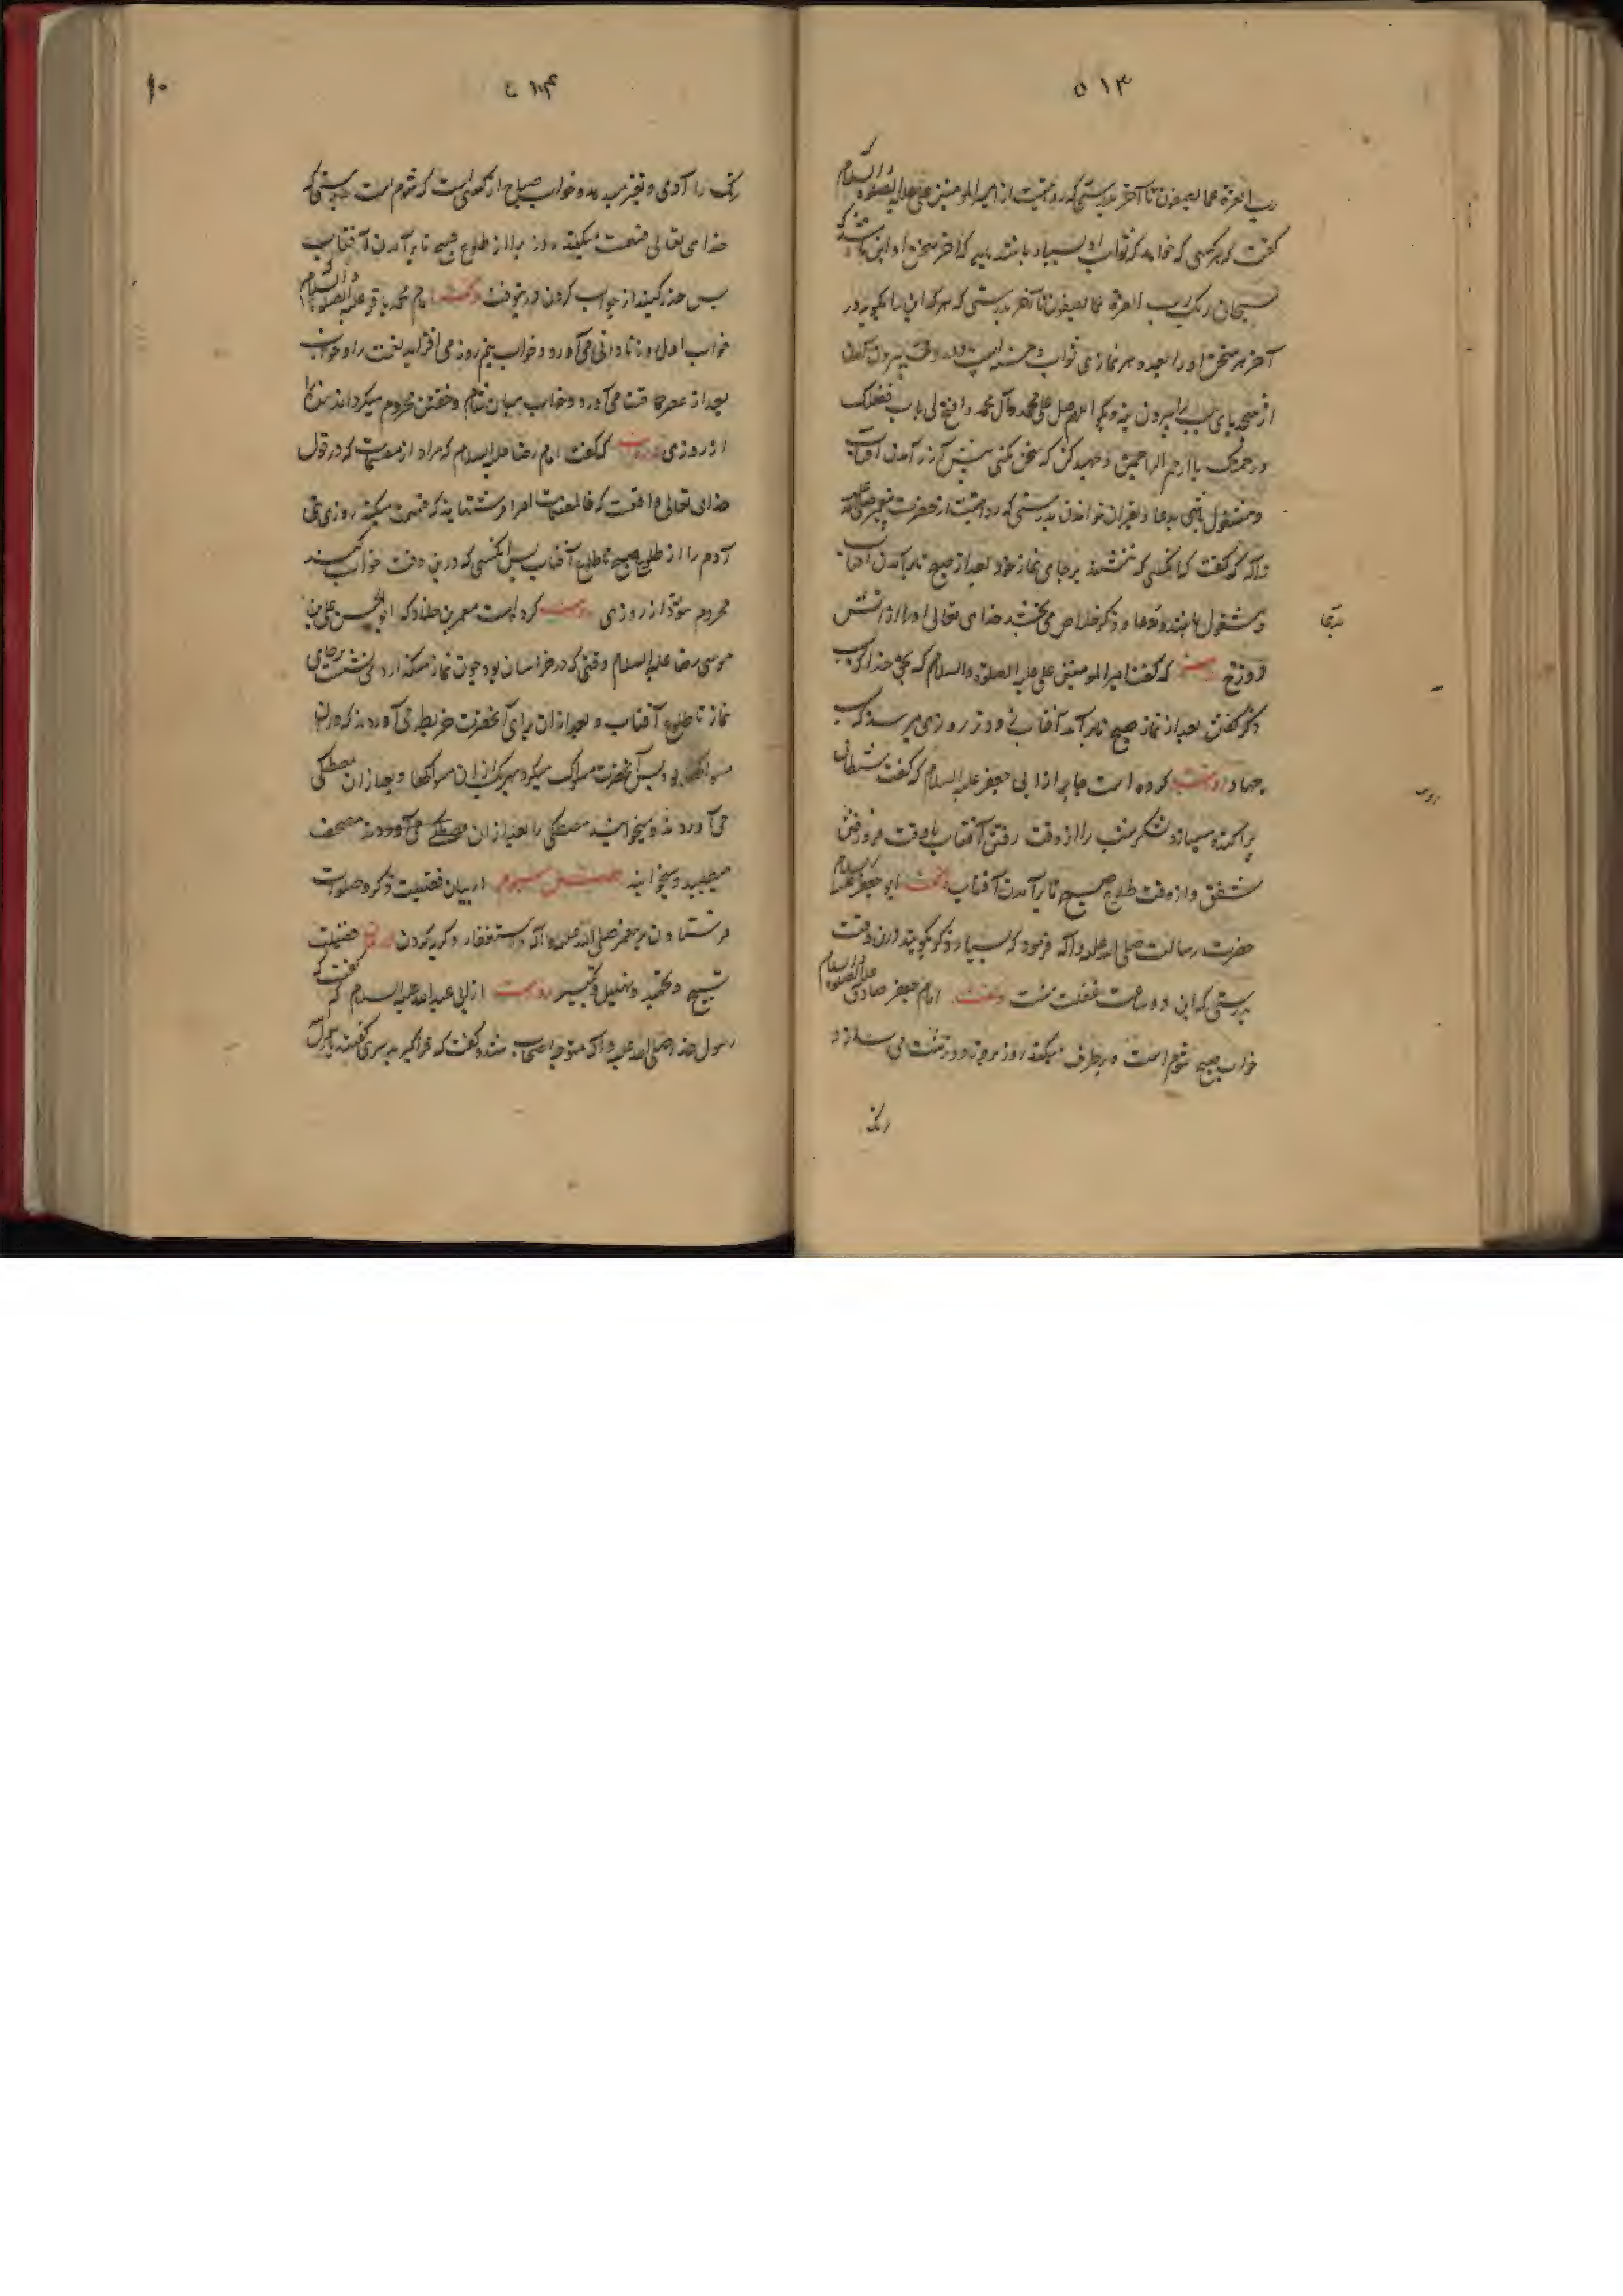 ۵۱۳
رب العزة عما یصفون تا آخر بدرستی که روایتست از امیر المومنین علی علیه الصلوة والسلام که
گفت که هر کسی که خواهد که ثواب او بسیار باشد باید که آخر سخن او این باشد که
سبحان ربک رب العزة عما یصفون تا آخر بدرستی که هر که این را بگوید در
آخر هر سخن او را بعدد هر نمازی ثواب و حسنه است و در وقت بیرون آمدن
از مسجد پای چپ را بیرون نه و بگو اللهم صل علی محمد وآل محمد وافتح لی باب فضلک
ورحمتک یا ارحم الراحمین و جهد کن که سخن نکنی پیش از بر آمدن آفتاب
و مشغول باشی بدعا و بقران خواندن بدرستی که روایتست از حضرت پیغمبر صلی الله علیه
وآله که گفت که آنکسی که بنشیند بر جای نماز خود بعد از صبح تا بر آمدن آفتاب
و مشغول باشد و دعا و ذکر خلاص می بخشد خدای تعالی او را از آتش
دوزخ که گفت امیر المومنین علی علیه الصلوة والسلام که بحق خدا که
ذکر گفتن بعد از نماز صبح تا بر آمدن آفتاب زودتر روزی میرسد که
جهاد روایت کرده است جابر از ابی جعفر علیه السلام که گفت شیطان
پراکنده میسازد لشکر شب را از وقت رفتن آفتاب تا وقت فرو رفتن
شفق و از وقت طلوع صبح تا بر آمدن آفتاب و گفت ابو جعفر علیه السلام
حضرت رسالت صلی الله علیه وآله فرمود که بسیار ذکر بگویید درین وقت
بدرستی که این دو ساعت غفلت است و گفت امام جعفر صادق علیه الصلوة والسلام
خواب صبح شوم است و برطرف میکند روزی را و زشت می سازد
رنگ
۵۱۴
۹۰
رنگ را آدمی و تغیر میدهد و خواب صباح از کسی است که شوم است بدرستی که
خدای تعالی قسمت میکند روزی را از طلوع صبح تا بر آمدن آفتاب
پس حذر کنید از خواب کردن درین وقت و گفت امام محمد باقر علیه الصلوة والسلام
خواب اول روز نادانی می آورد و خواب نیم روز می افزاید نعمت را و خواب
بعد از عصر حماقت می آورد و خواب میان شام و خفتن محروم میگرداند
از روزی که گفت امام رضا علیه السلام که مراد از مقسمات که در قول
خدای تعالی واقعست که فالمقسمات امرا فرشتهااند که قسمت میکنند روزی بنی
آدم را از طلوع صبح تا طلوع آفتاب پس آنکسی که درین وقت خواب کند
محروم شود از روزی روایت کرده است معمر بن خلاد که ابو الحسن علی بن
موسی رضا علیه السلام وقتی که در خراسان بود چون نماز میگذارد می نشست بر جای
نماز تا طلوع آفتاب و بعد از آن برای آنحضرت خریطه می آوردند که در آن
مسواکها بود پس آنحضرت مسواک میکرد بهر یک از آن مسواکها و بعد از آن مصطکی
می آوردند و میخوایید مصطکی را بعد از آن مصحف می آوردند مصحف
میطلبید و میخواند فصل سیوم در بیان فضیلت ذکر و صلوات
فرستادن بر پیغمبر صلی الله علیه وآله و استغفار و گریه کردن فضیلت
تسبیح و تحمید و تهلیل و تکبیر روایت از ابی عبد الله علیه السلام که گفت که
رسول خدا صلی الله علیه وآله متوجه اصحاب شد و گفت که فرا گیرید سپری گفتند یا رسول الله